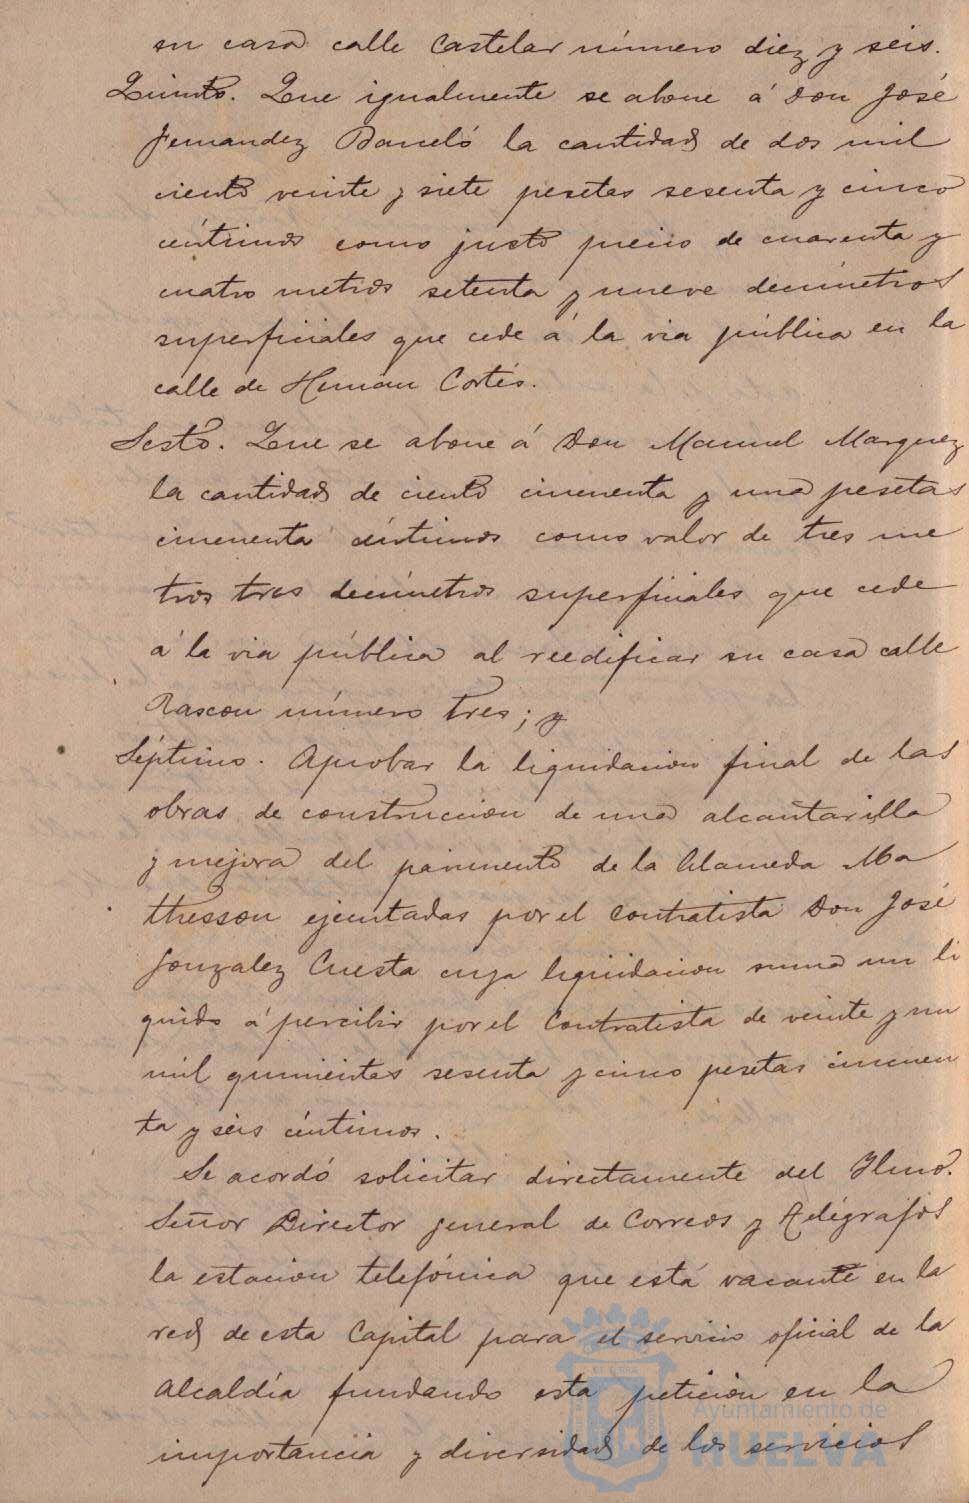 su casa calle Castelar número diez y seis.
Quinto. Que igualmente se abone á Don José
Fernandez Barceló la cantidad de dos mil
ciento veinte y siete pesetas sesenta y cinco
céntimos como justo precio de cuarenta y
cuatro metros setenta y nueve decímetros
superficiales que cede á la via pública en la
calle de Hernan Cortés.
Sesto. Que se abone á Don Manuel Marquez
la cantidad de ciento cincuenta y una pesetas
cincuenta céntimos como valor de tres me
tros tres decímetros superficiales que cede
á la via pública al reedificar su casa calle
Rascon número tres; y
Séptimo. Aprobar la liquidacion final de las
obras de construccion de una alcantarilla
y mejora del pavimento de la Alameda Ma
thesson ejecutadas por el contratista Don José
Gonzalez Cuesta cuya liquidacion suma un li
quido á percibir por el Contratista de veinte y un
mil quinientas sesenta y cinco pesetas cincuen
ta y seis céntimos.
Se acordó solicitar directamente del Ylmo.
Señor Director general de Correos y Telégrafos
la estacion telefónica que está vacante en la
red de esta Capital para el servicio oficial de la
Alcaldía fundando esta peticion en la
importancia y diversidad de los servicios
Ayuntamiento de
HUELVA